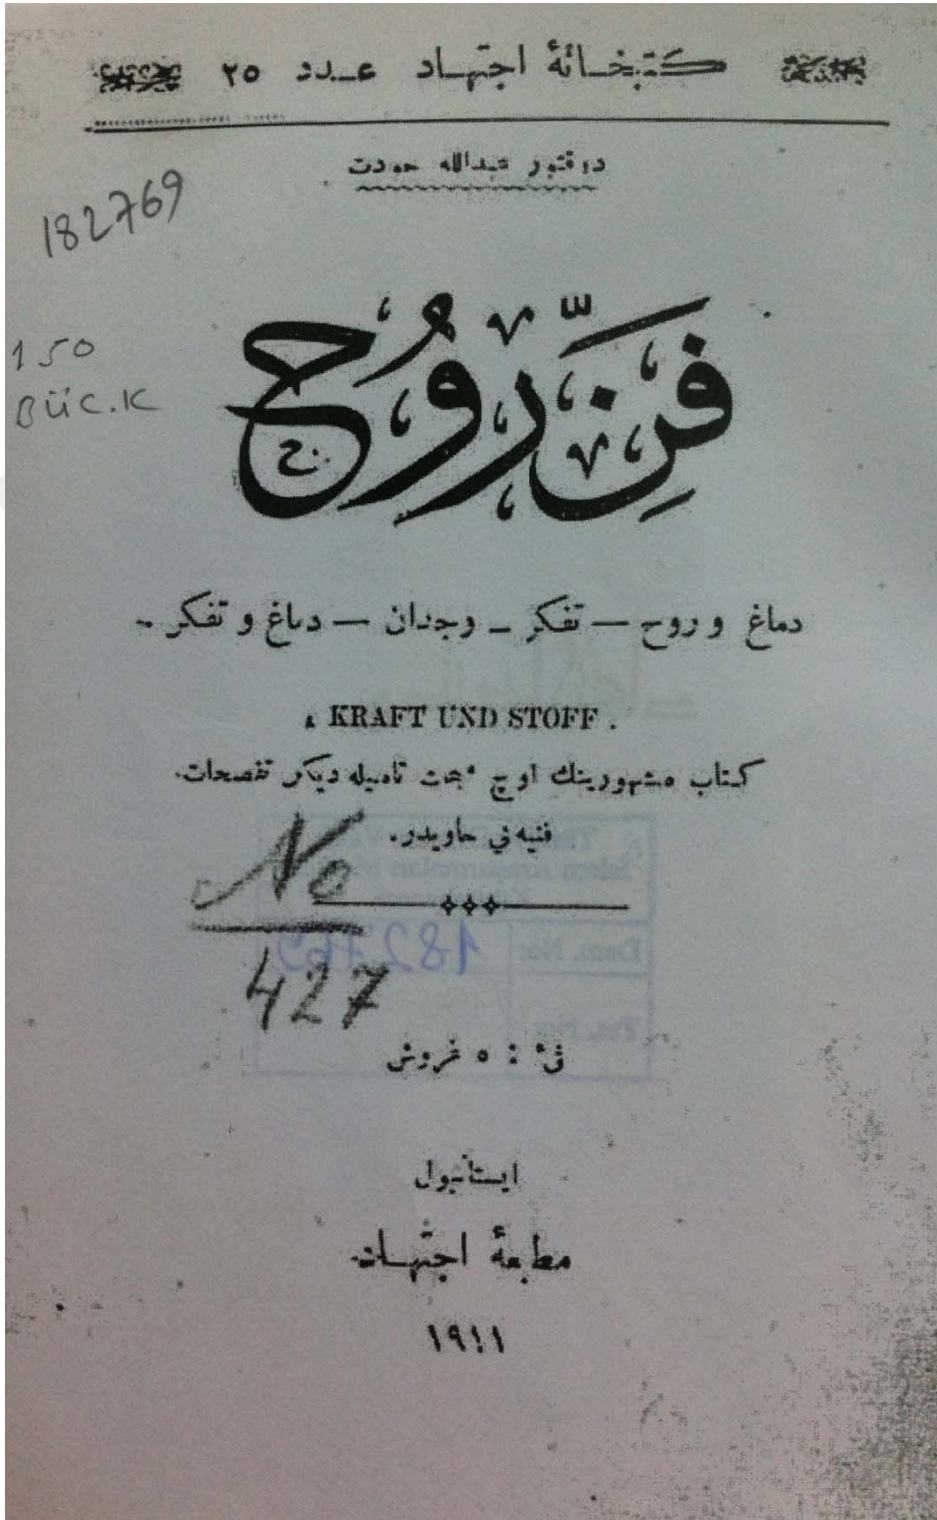 كتبخانهٔ اجتهاد عدد ٢٥
دوقتور عبدالله جودت
182769
فنِّ روُح
150
BÜC.K
دماغ و روح — تفكر — وجدان — دماغ و تفكر
KRAFT UND STOFF
كتاب مشهورينك اوچ مبحث تاميله ديكر تفصحات
فنيه‌ني حاويدر.
No
427
فئ : ٥ غروش
ايستانبول
مطبعهٔ اجتهاد
١٩١١